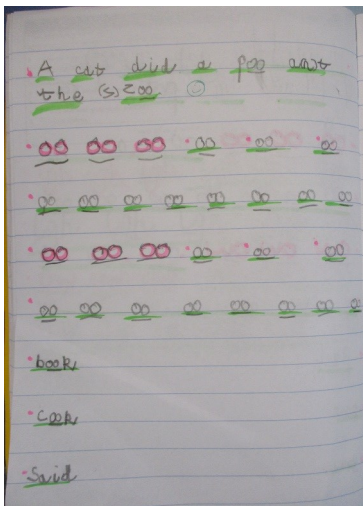 A cat did a poo
the (s) zoo
oo oo oo oo oo oo
oo oo oo oo oo oo oo oo
oo oo oo oo oo oo
oo oo oo oo oo oo oo oo
book
cook
Said